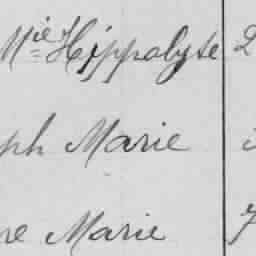 Mie Hippolyte 2
ph Marie
re Marie 7